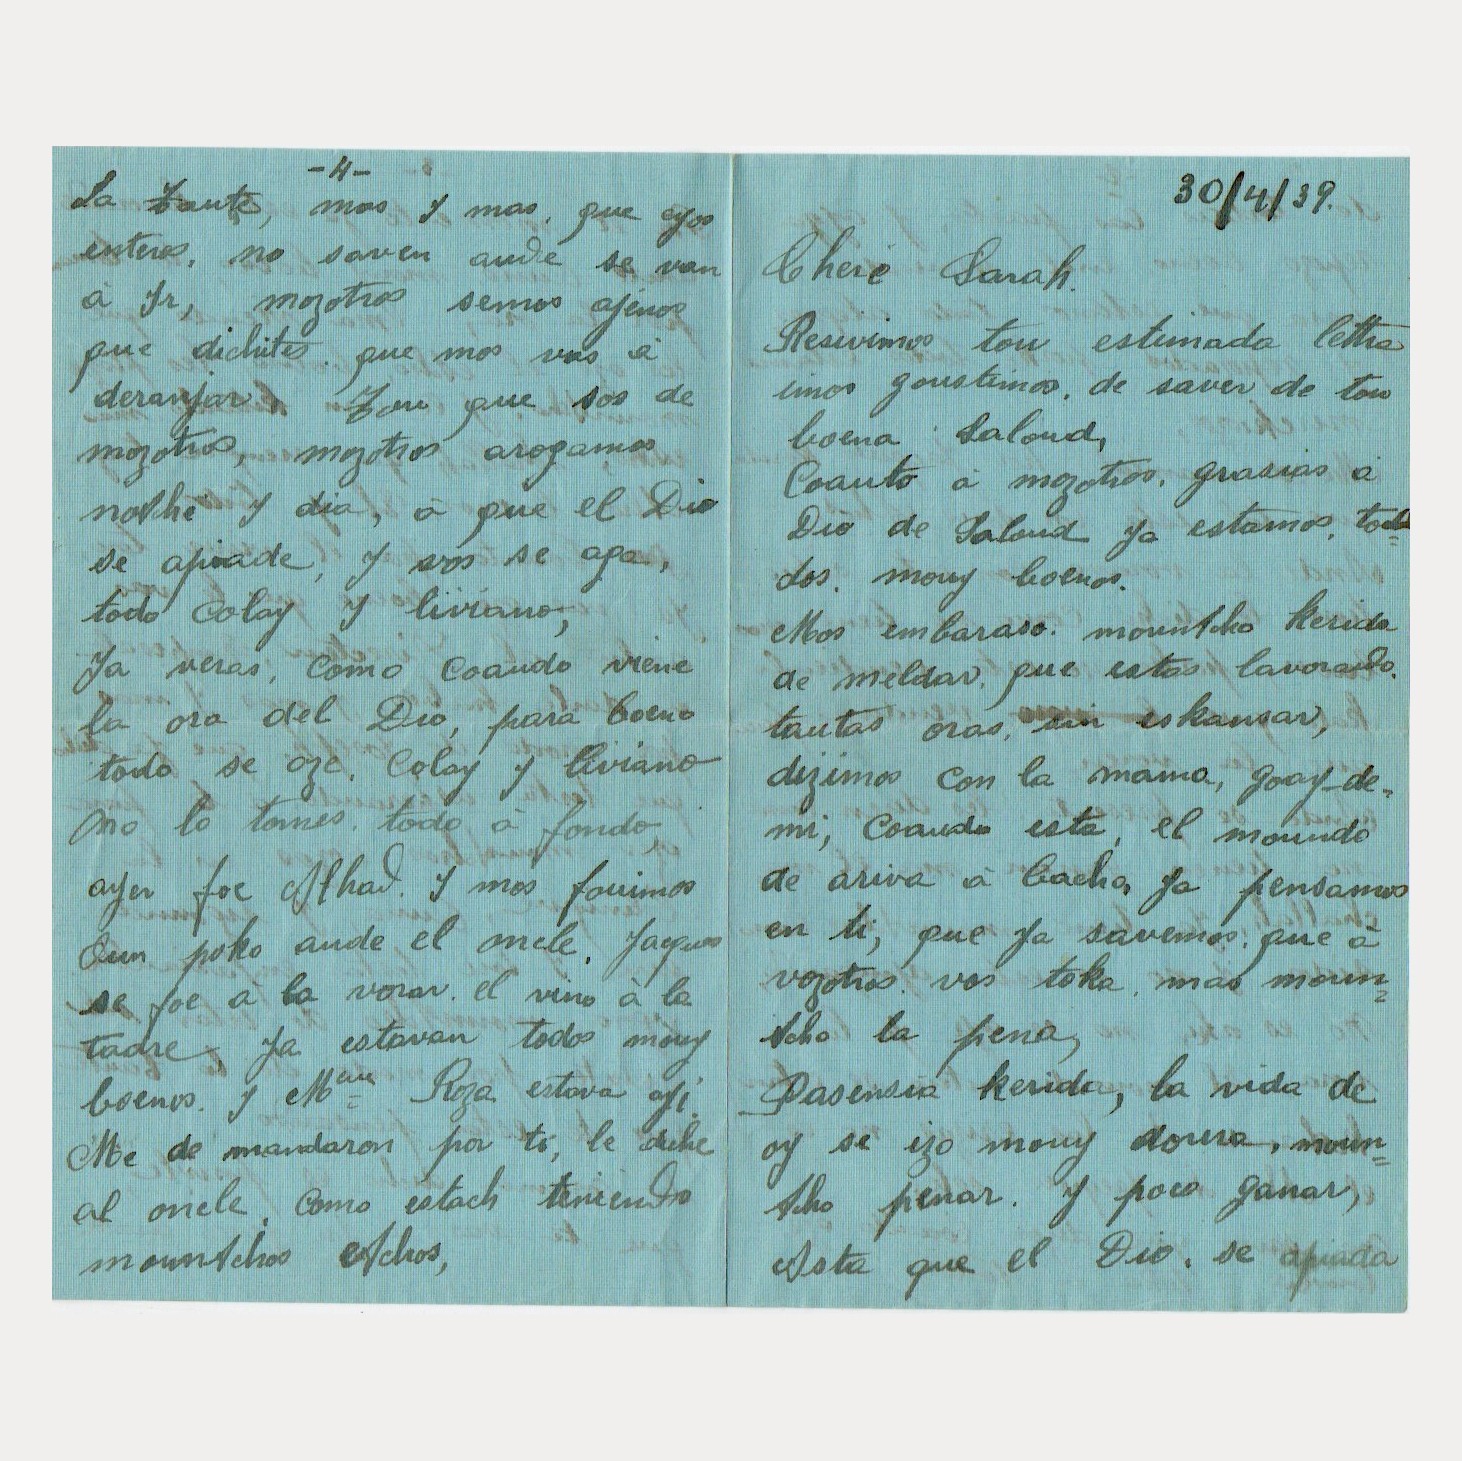 30/4/39.
Cheré Sarah.
Resivimos tou estimada lettra
imos goustimos, de saver de tou
boena Saloud,
Coanto à mozotros, grasias à
Dio de Saloud ya estamos, to=
dos, mouy boenos.
Mos embaraso. mountcho kerida
de meldar, que estas lavorando.
tantas oras, sin eskansar,
dizimos con la mama, goay-de-
mi, Coando esta, el moundo
de ariva à bacho, ya pensamos
en ti, que ya savemos, que à
vozotros, vos toka, mas moun=
tcho la pena,
Pasensia kerida, la vida de
oy se izo mouy doura, moun=
tcho penar, y poco ganar,
Asta que el Dio, se apiada
-4-
La Tante, mas y mas, que eyos
enteros, no saven ande se van
à Ir, mozotros semos ajenos
que dichites, que mos vas à
deranjar, Tou que sos de
mozotros, mozotros arogamos
notche y dia, à que el Dio
se apiade, y vos se aga,
todo Colay y liviano,
Ya veras, Como Coando viene
la ora del Dio, para boeno
todo se aze, Colay y liviano
No lo tomes, todo à fondo
ayer foe Alhad, y mos fouimos
Oun poko ande el oncle, Jaques
se foe a la vorar, el vino à la
tadre, Ya estavan todos mouy
boenos. Y Mme Roza estava ayi
Me de mandaron por ti, le dihe
al oncle, Como estach teniendo
mountchos etchos,